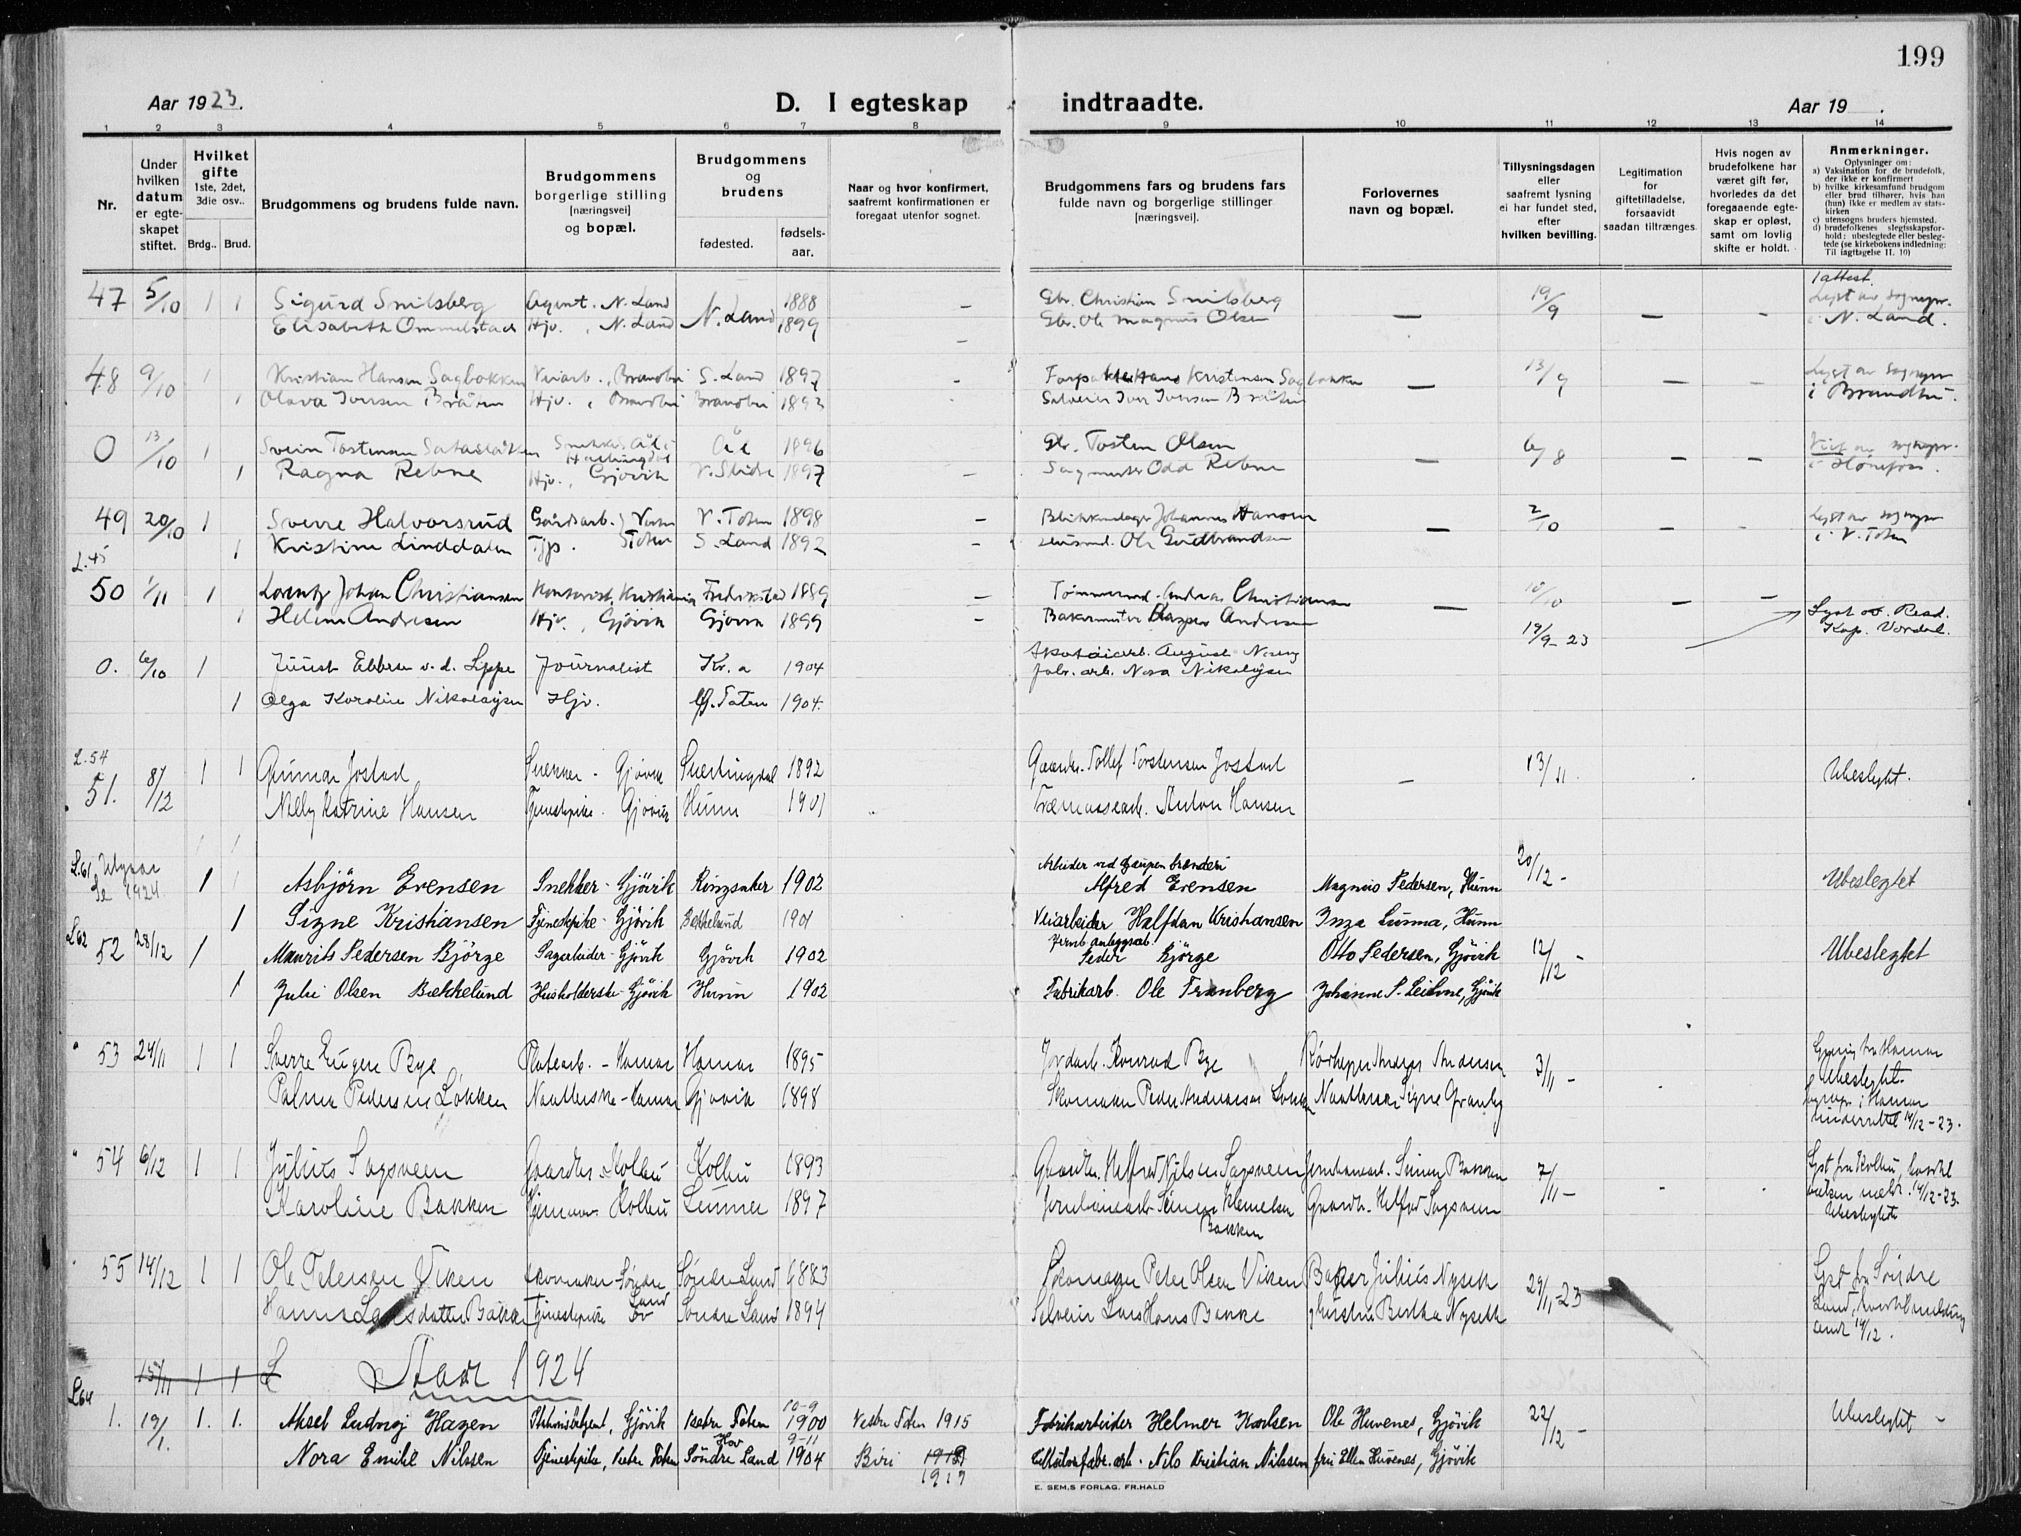 199
Aar 1923.
D. I egteskap indtraadte.
Aar 19 .
1 2 3 4 5 6 7 8 9 10 11 12 13 14
Nr.
Under hvilken datum er egteskapet stiftet.
Hvilket gifte 1ste, 2det, 3die osv..
Brdg.. Brud.
Brudgommens og brudens fulde navn.
Brudgommens borgerlige stilling [næringsvei] og bopæl.
Brudgommens og brudens
fødested.
fødselsaar.
Naar og hvor konfirmert, saafremt konfirmationen er foregaat utenfor sognet.
Brudgommens fars og brudens fars fulde navn og borgerlige stillinger [næringsvei].
Forlovernes navn og bopæl.
Tillysningsdagen eller saafremt lysning ei har fundet sted, efter hvilken bevilling.
Legitimation for giftetilladelse, forsaavidt saadan tiltrænges.
Hvis nogen av brudefolkene har været gift før, hvorledes da det foregaaende egteskap er opløst, samt om lovlig skifte er holdt.
Anmerkninger.
Oplysninger om:
a) Vaksination for de brudefolk, der ikke er konfirmert
b) hvilke kirkesamfund brudgom eller brud tilhører, hvis han (hun) ikke er medlem av statskirken
c) utensogns bruders hjemsted.
d) brudefolkenes slegtsskapsforhold: ubeslegtede eller beslegtede (se kirkebokens indledning: Til iagttagelse II. 10)
1 attest.
47 5/10 1 1 Sigurd Smilsberg Agent. N. Land N. Land 1888 – Gbr. Christian Smilsberg — 19/9 — - Lyst av sognepr.
Elisabeth Ommelstad Hjv. , N. Land 1899 – Gbr. Ole Magnus Olsen i N. Land.
48 9/10 1 Kristian Hansen Sagbakken Veiarb., Brandbu S. Land 1897 - Hans Kristensen Sagbakken — 13/9 — - Lyst av sognepr
1 Olava Iversen Bråten Hjv. , Brandbu Brandbu 1893 Iver Iversen Bråten i Brandbu.
0 13/10 1 Svein Tostensen Ål i Hallingdal Ål 1896 Gbr. Tosten Olsen — 6/8 — - sognepr.
1 Ragna Rebne Hjv., Gjøvik V. Slidre 1897 — Sagmester Odd Rebne i Hønefoss.
49 20/10 1 Sverre Halvorsrud Gårdsarb. Vestre Toten V. Toten 1898 – Johannes Hansen — 2/10 — – Lyst av sognepr
1 Kristine Linddalen Tjp. S. Land 1892 - Husmd. Ole Gudbrandsen i V. Toten
L. 45
50 1/11 1 Lorentz Johan Christiansen Kontorist, Kristiania Fredrikstad 1889 — Tømmermd. Andreas Christiansen — 10/10 — –
1 Helene Andresen Hjv. , Gjøvik Gjøvik 1899 – Bakermester Andresen 19/9-23 Lyst av. Resd. Kap. Vordal.
0. 6/10 1 Juust Ebbesen v. d. Lippe Journalist Kr. a 1904 August
fabr. arb. Nora Nikolaysen
1 Olga Karoline Nikolaysen Hjv. Ø. Toten 1904.
L. 54
51. 8/12 1 1 Gunnar Jostad Snekker - Gjøvik Snertingdal 1892 Gaardbr. Tollef Torstensen Jostad - 13/11. Ubeslegt.
Nelly Katrine Hansen Tjenestepike. Gjøvik Hunn 1901 Træmassearb. Anton Hansen
L. 61 Utgaar Se 1924 1 Asbjörn Evensen Snekker - Gjövik Ringsaker 1902 Arbeider ved Gaupen brænderi Alfred Evensen Magnus Pedersen, Hunn 20/12 - Ubeslegtet
1 Signe Kristiansen Tjenestpike - Gjövik Bekkelund 1901 Veiarbeider Halfdan Kristiansen Inga Lunna, Hunn
L62 52 28/12 1 Maurits Pedersen Bjørge Sagarbeider - Gjövik Gjøvik 1902 Jernb. anleggsarb. Peder Bjørge Otto Pedersen, Gjövik 12/12 - Ubeslegtet
1 Julie Olsen Bækkelund Husholderske - Gjövik Hunn 1902 Fabrikarb. Ole Tranberg Johanne P. Leine, Gjövik
53 24/11 1 1 Sverre Eugen Bye Platearb. - Hamar Hamar 1895 Jordarb. Konrad Bye Rørlegger Andersen 3/11 - Lysning fra Hamar
Palma Pedersen Løkken - Hamar Gjøvik 1898 Skomaker Peder Andreassen Løkken Signe Granly Ubeslegt.
sognepr. i Hamar underrettet 14/12-23.
54 6/12 1 1 Julius Sagsveen Gaardbr. Kolbu Kolbu 1893 Gaardbr. Helfred Nilsen Sagsveen Simen Bakken 7/11 - Lyst fra Kolbu,
Karoline Bakken Hjemmev. Kolbu Lunner 1897 Simen Klemetsen Bakken Gaardbr. Helfred Sagsveen 14/12-23. Ubeslegtet
55 14/12 1 1 Ole Petersen Viken Skomaker - Søndre Land Søndre Land 1883 Skomaker Peter Olsen Viken Baker Julius Nyseth 29/11-23 Lyst fra Søndre
Hanna Larsdatter Bakke Tjenestepike Søndre Land 1894 Selveier Lars Hans Bakke Bertha Nyseth Land, sendt 14/12.
15/11 1 1 L
Aar 1924
L64
1. 19/1. 1. 1. Aksel Ludvig Hagen Stationsbetjent, Gjövik Vestre Toten 10-9 1900 Vestre Toten 1915 Fabrikarbeider Helmer Karlsen Ole Huvenes, Gjövik 22/12 - Ubeslegt -
Nora Emilie Nilssen Tjenestepike, Vestre Toten Hov Söndre Land 9-11 1904 Biri 1919 Nils Kristian Nilssen fru Ellen Huvenes, Gjövik
E. SEM.S FORLAG. FR.HALD